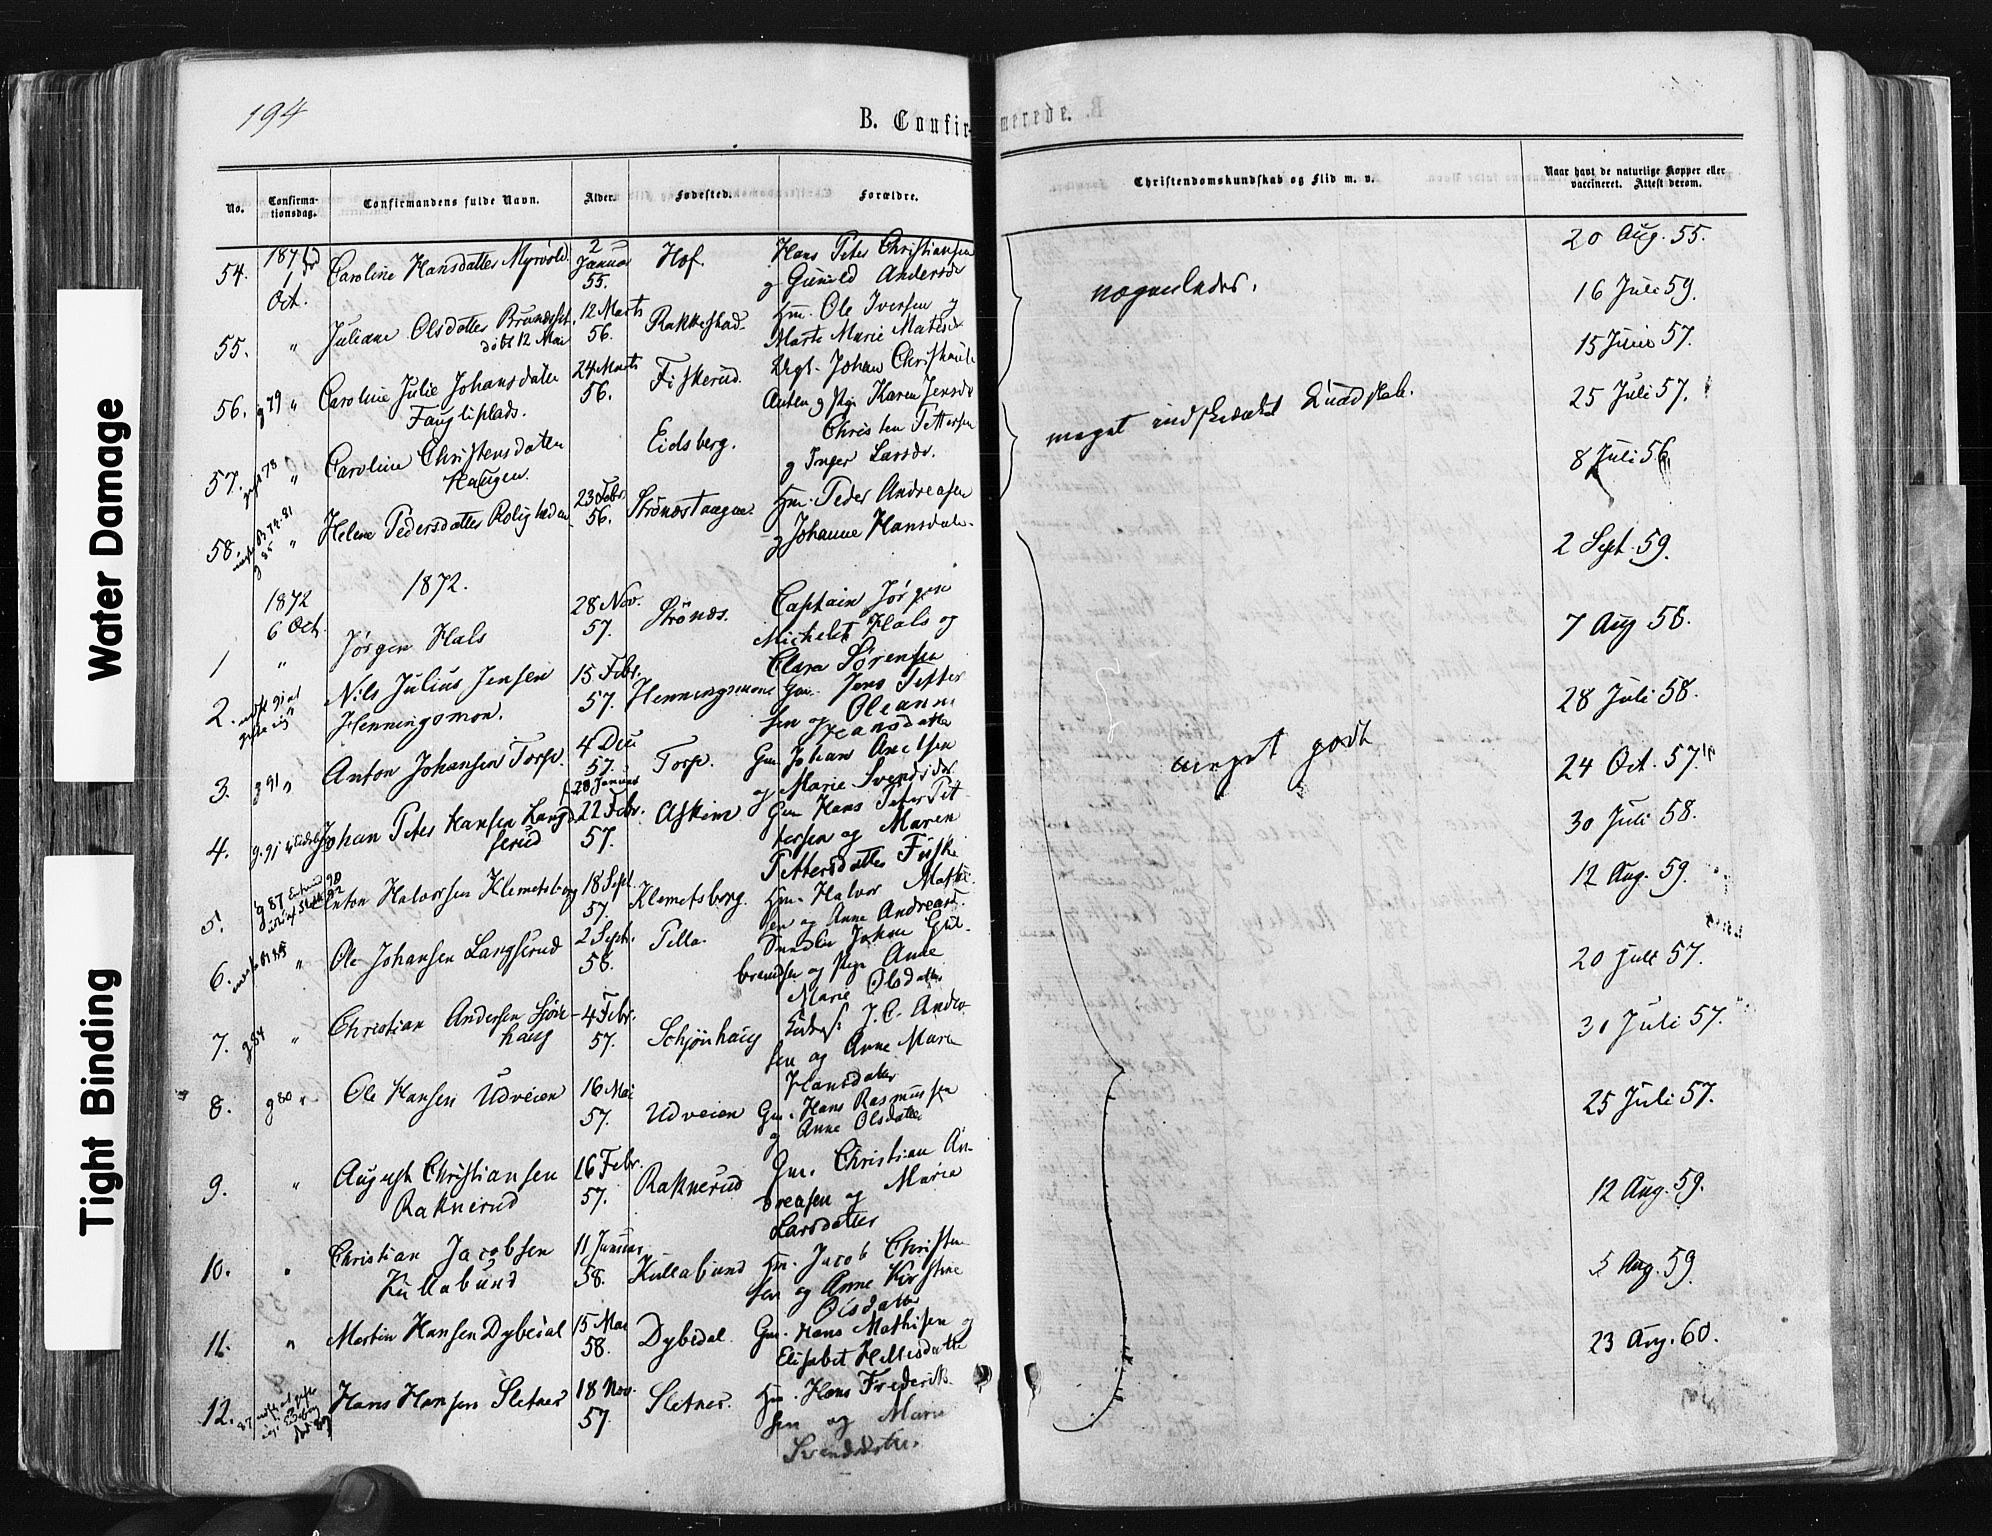 194
B. Confir-
merede.
No.
Confirma-
tionsdag.
Confirmandens fulde Navn.
Alder.
Fødested.
Forældre.
Christendomskundskab og Flid m. v.
Naar havt de naturlige Kopper eller
vaccineret. Attest derom.
54. 1871 1 Oct. Caroline Hansdatter Myrvold 2 Januar 55. Hof. Hans Peter Christiansen
og Gunild Andersdr
20 Aug. 55.
55. " Juliane Olsdatter 12 Marts 56. Rakkestad. Hm. Ole Iversen og
døbt 12 Mai Marte Marie
nogenledes.
16 Juli 59.
56. g 79 " Caroline Julie Johansdatter 24 Marts 56. Fiskerud. Johan
og Karen Jensdr
15 Juni 57.
57. 78 " Caroline Christensdatter Eidsberg. Christen Pettersen
Haugen. og Inger Larsdr.
meget indskrænket Kundskab.
25 Juli 57.
58. " Helene Pedersdatter Roligheden 23 Febr. 56. Strønæstangen. Hm. Peder Andreasen
og Johanne Hansdatter
8 Juli 56
1872.
1872
6 Oct.
1 " Jørgen Hals 28 Nov. 57. Strønæs. Captain Jørgen
Michelet Hals og
Clara Sørensen
2 Sept. 59.
2. Nils Julius Jensen 15 Febr. 57. Henningsmoen Gm. Jens Petter
Henningsmon. sen og Oleanne
Hansdatter
7 Aug 58.
3. g 91 " Anton Johansen Torp. 4 Dec 57. Torp. Gm. Johan Axelsen
og Marie Svendsdr.
28 Juli 58.
4. g. 91 Johan Peter Hansen Langs 22 Febr. 57. Askim Gm Hans Peter Pet-
serud tersen og Maren
Pettersdatter Fuske
meget godt
24 Oct. 57.
5. g 87 Anton Halvorsen Klemetsborg 18 Sept. 57. Klemetsborg. Hm. Halvor
sen og Anne Andreasd.
30 Juli 58.
6. " Ole Johansen Langserud 2 Sept. 58. Pella. Johan Gul-
brandsen og Anne
Marie Olsdatter
12 Aug. 59.
7. g 84 " Christian Andersen Sjøn- 4 Febr. 57. Schjønhaug J. C. Ander
haug sen og Anne Marie
Hansdatter
20 Juli 57.
8. g 80 " Ole Hansen Udveien 16 Mai 57. Udveien Gm. Hans Rasmussen
og Anne Olsdatter
30 Juli 57.
9. " August Christiansen 16 Febr. 57. Raknerud Gm. Christian An-
Raknerud dreasen og Maria
Larsdatter
25 Juli 57.
10. " Christian Jacobsen 11 Januar 58. Kullabund Hm. Jacob Christen
Kullabund sen og Anne Kirstine
Olsdatter
12 Aug. 59.
11. " Martin Hansen Dybedal 15 Mai 58. Dybedal. Gm. Hans Mathisen og
Elisabet
5 Aug. 59.
12. Hans Hansen Sletner 18 Nov. 57. Sletner. Hm. Hans Frederik-
sen og Marie
Svendsdatter.
23 Aug. 60.
Water Damage
Tight Binding